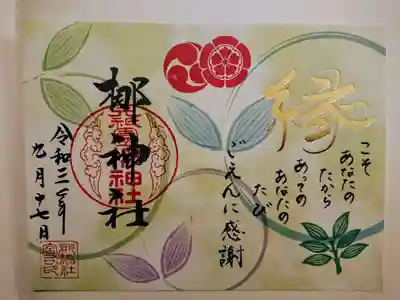 縁
こそ
あなたの
たから
あっての
あなたの
たび
ごえんに感謝
梛神社
令和三年
九月十七日